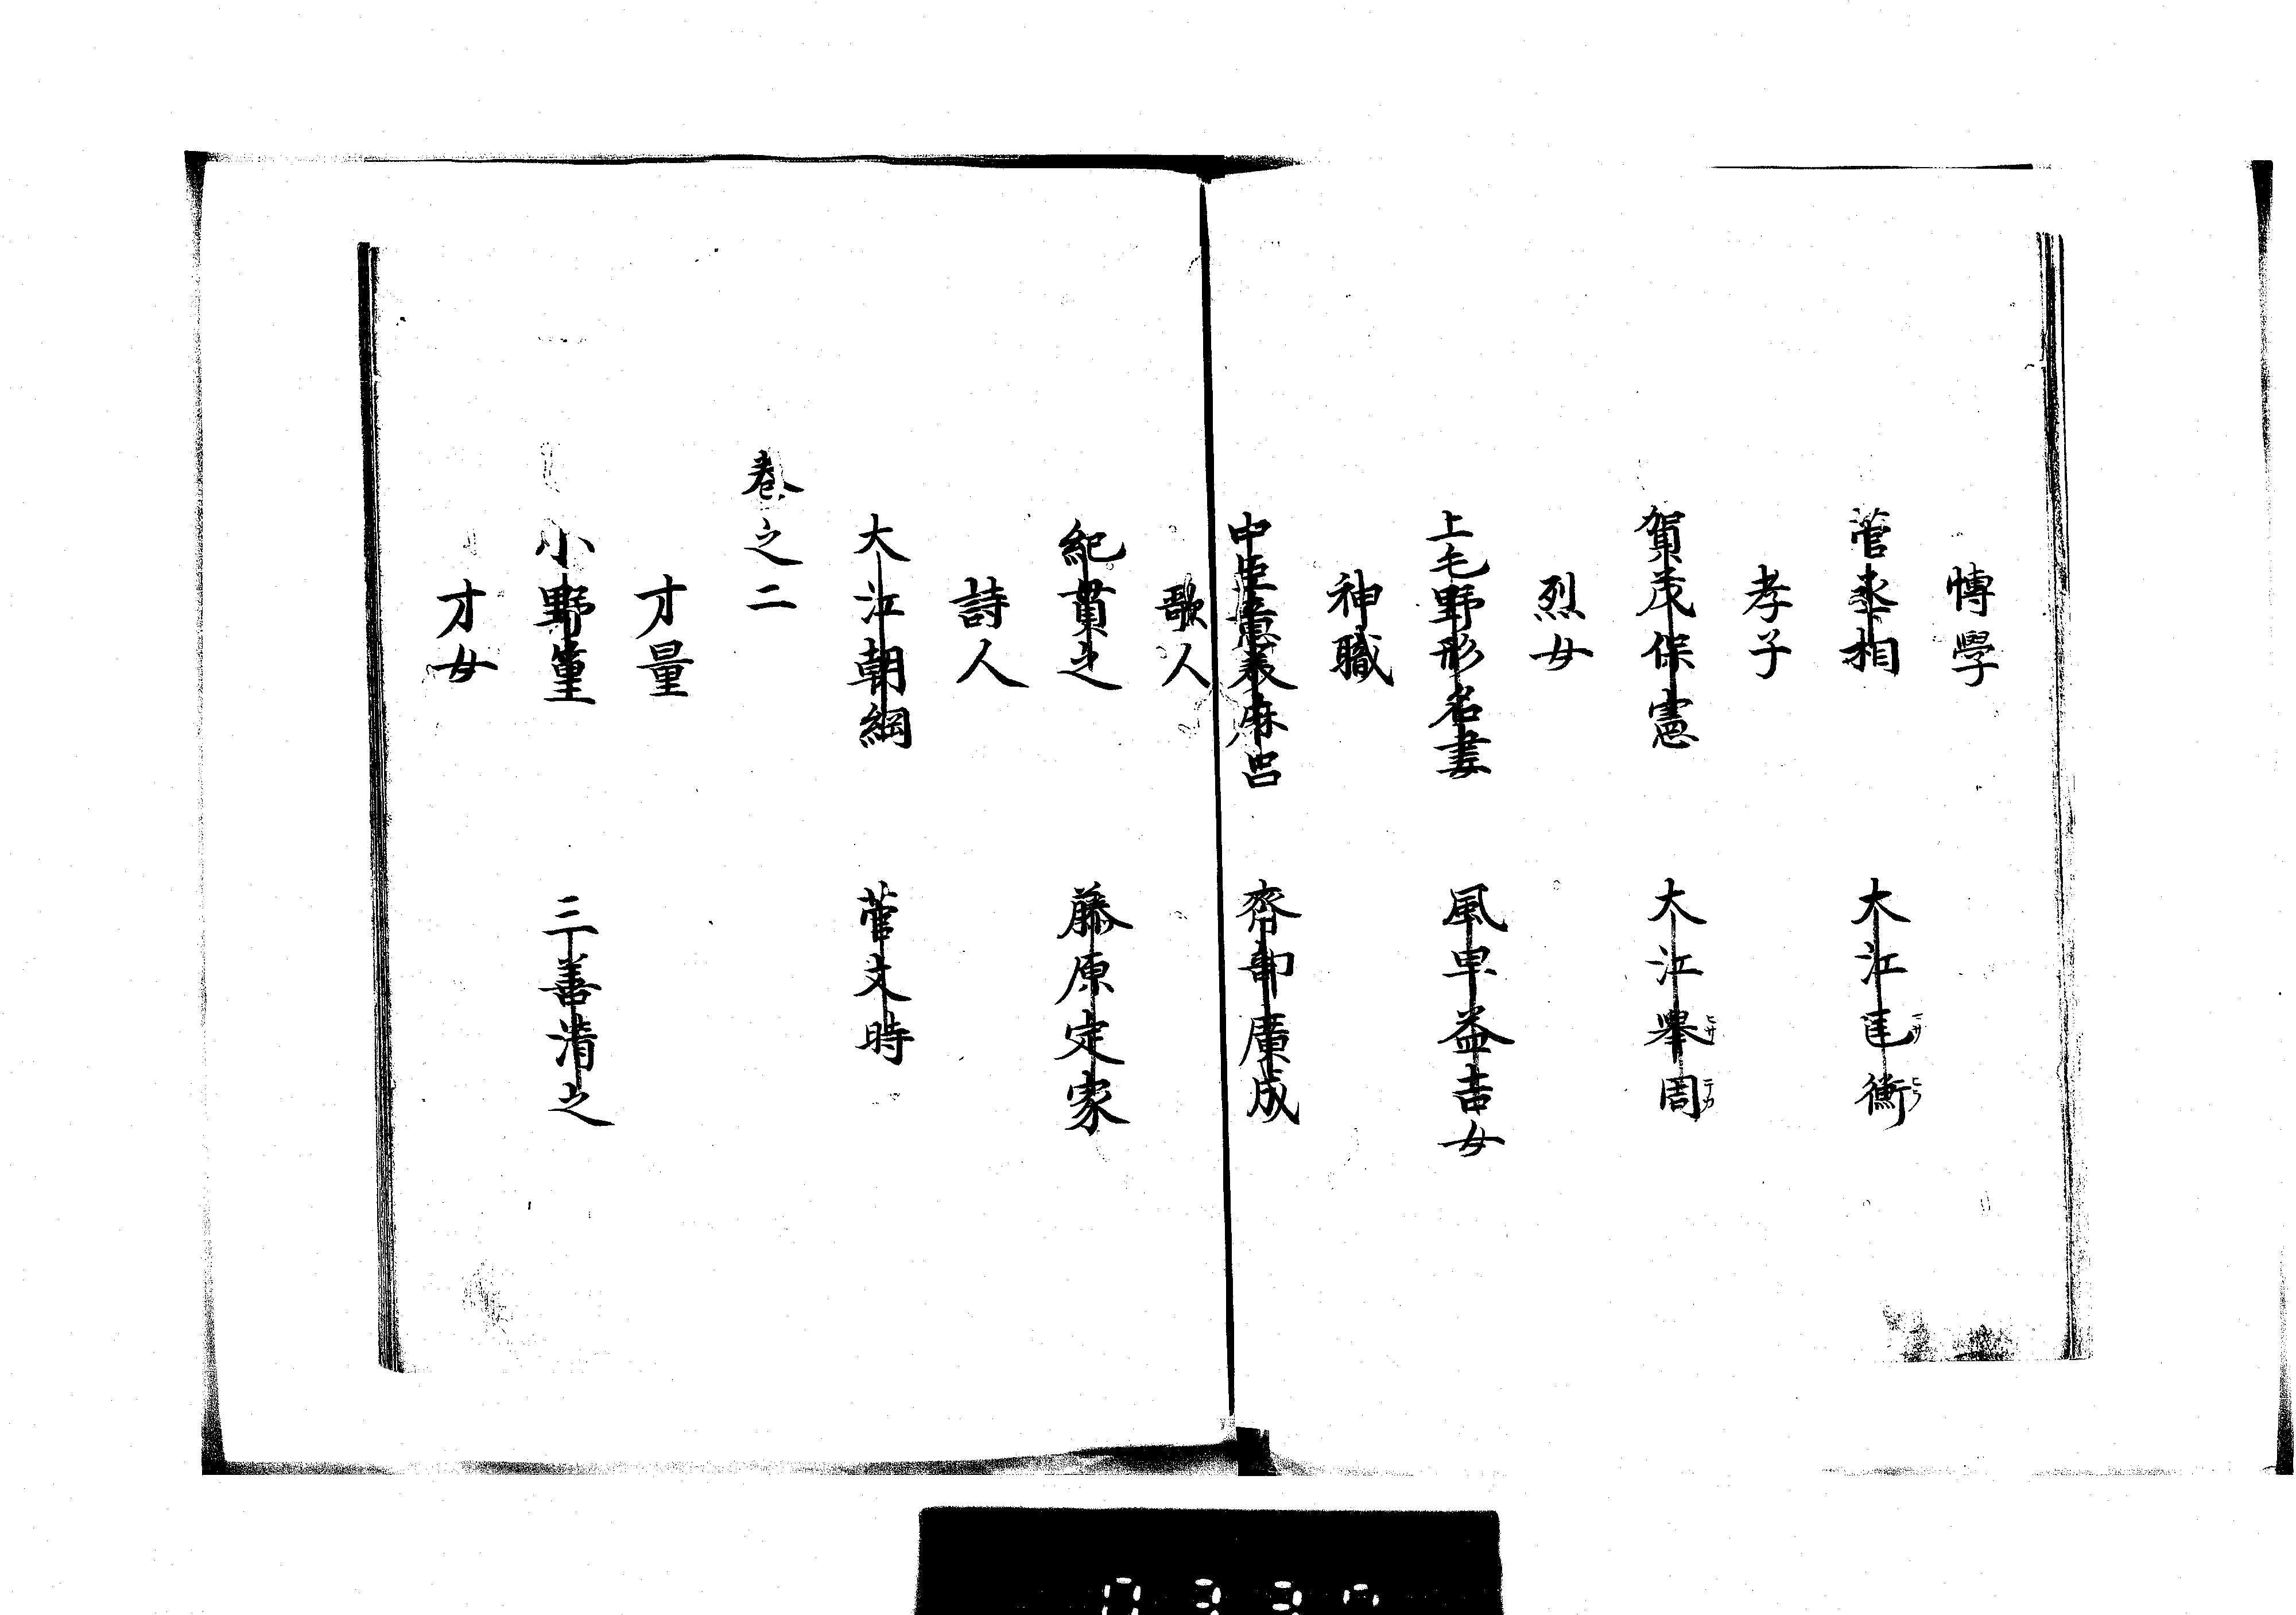 博學
菅丞相　大江匡衡
孝子
賀茂保憲　大江舉周
烈女
上毛野形名妻　風早益吉女
神職
中臣意美麻呂　齊部廣成
歌人
紀貫之　藤原定家
詩人
大江朝綱　菅文時
巻之二
才量
小野篁　三善清之
才女